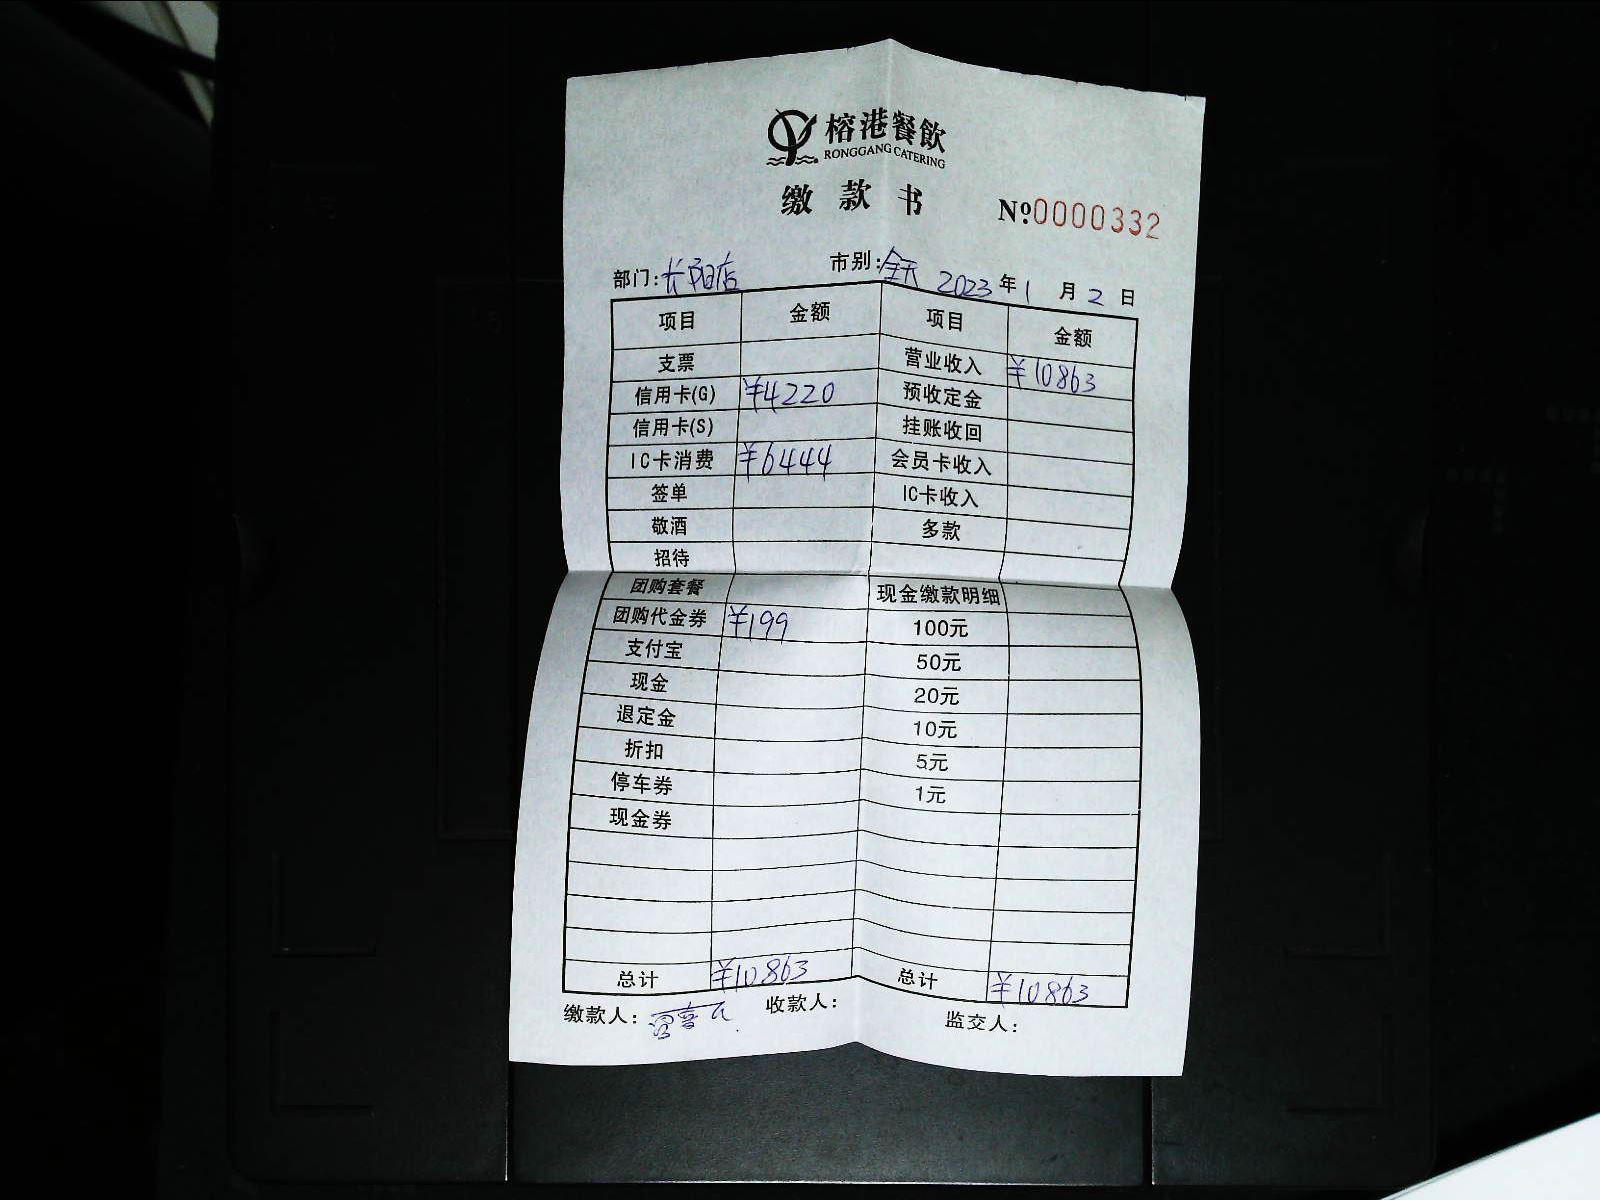 榕港餐飲
RONGGANG CATERING
缴款书
№0000332
部门:长阳店 市别:全天 2023年1月2日
项目 金额 项目 金额
支票 营业收入 ¥10863
信用卡(G) ¥4220 预收定金
信用卡(S) 挂账收回
IC卡消费 ¥6444 会员卡收入
签单 IC卡收入
敬酒 多款
招待
团购套餐 现金缴款明细
团购代金券 ¥199 100元
支付宝 50元
现金 20元
退定金 10元
折扣 5元
停车券 1元
现金券
总计 ¥10863 总计 ¥10863
缴款人: 收款人: 监交人: